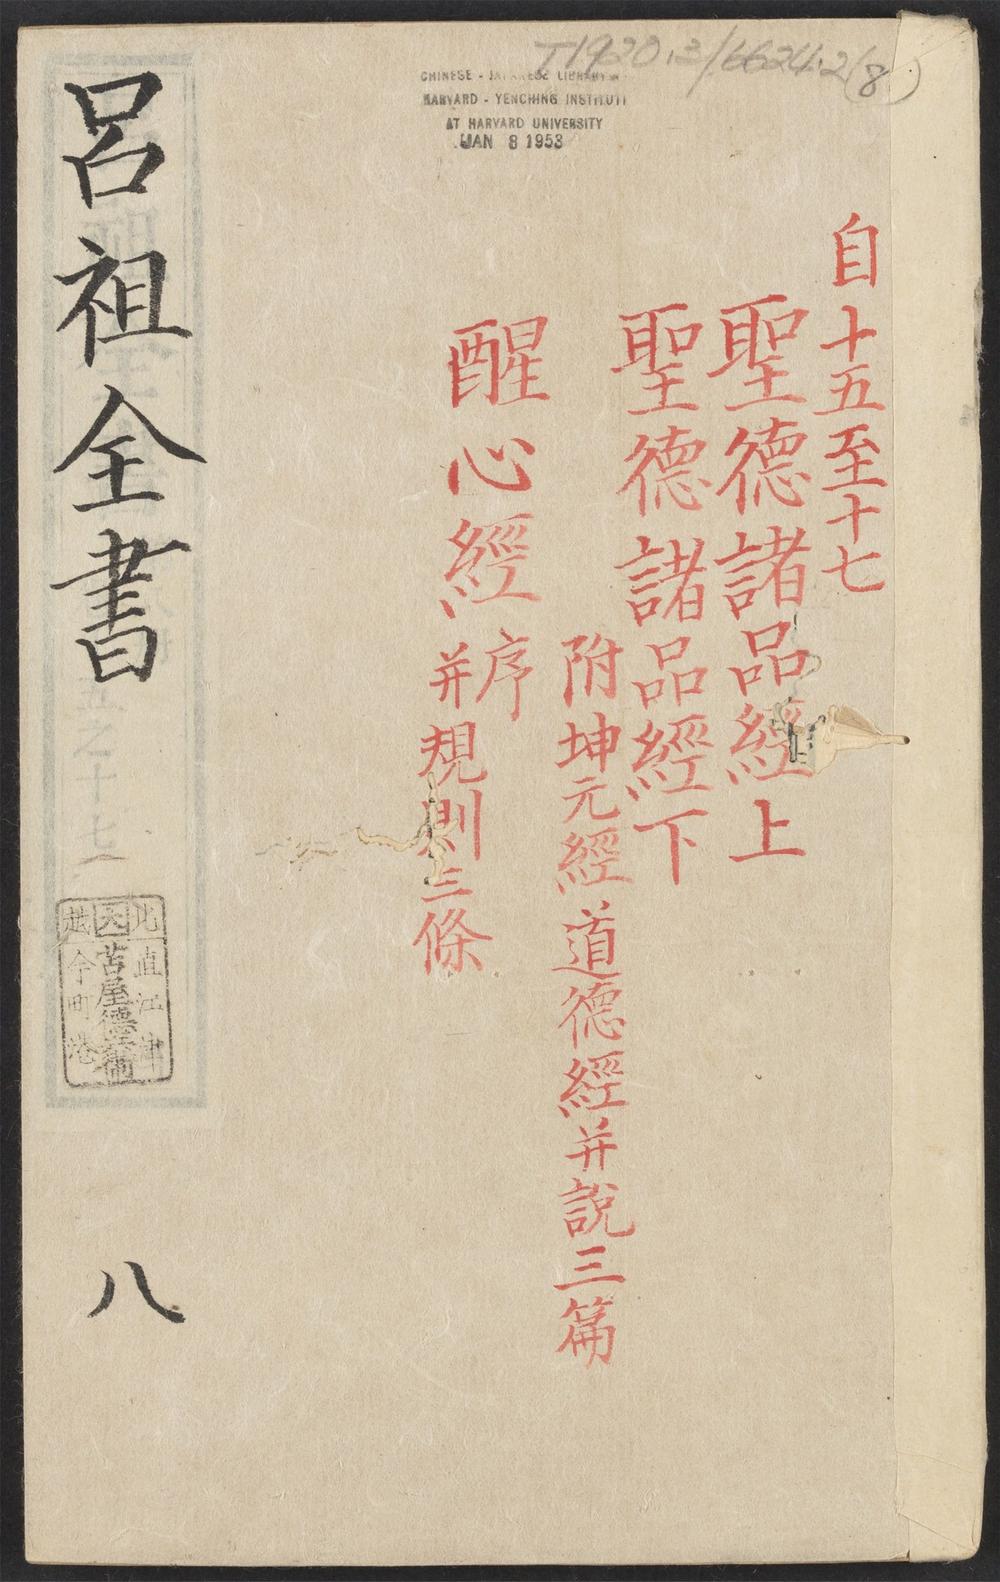 T1920.2/6624.2(8)
CHINESE - JAPANESE LIBRARY
HARVARD - YENCHING INSTITUTE
AT HARVARD UNIVERSITY
JAN 8 1953
自十五至十七
聖德諸品經上
聖德諸品經下
附坤元經道德經并說三篇
醒心經序
并規則三條
呂祖全書
八
北直江津
因苫屋德
越今町港